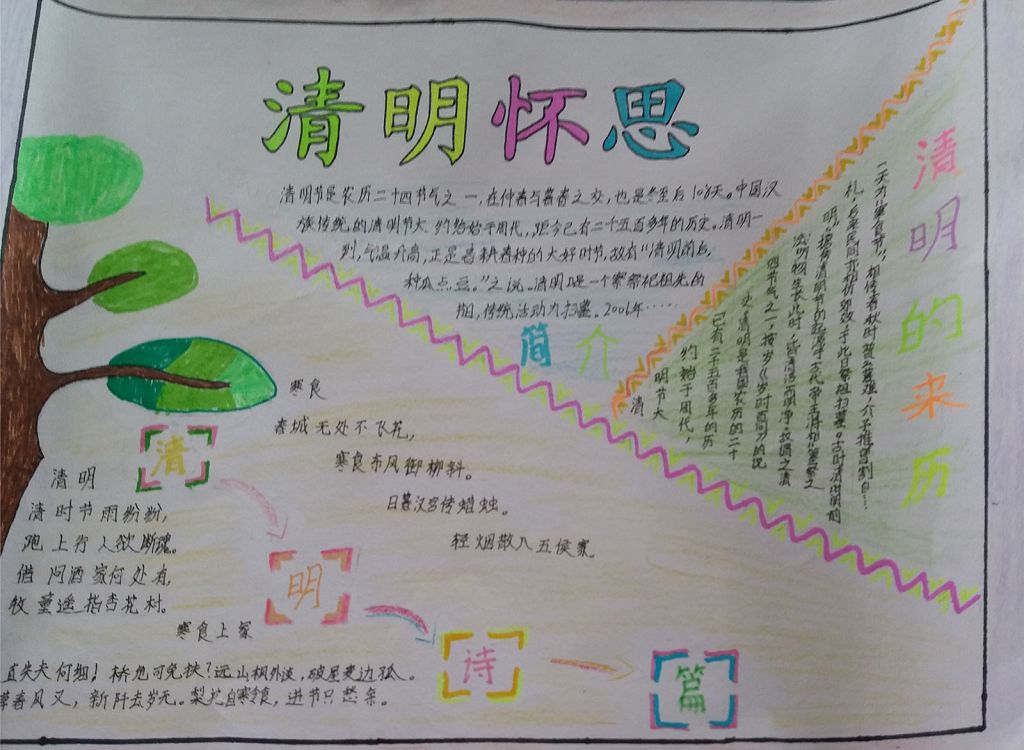 清明怀思
清明节是农历二十四节气之一,在仲春与暮春之交,也是冬至后108天。中国汉
族传统的清明节大约始于周代,距今已有二千五百多年的历史。清明一
到,气温升高,正是春耕春种的大好时节,故有"清明前后,
种瓜点豆。"之说。清明是一个祭祀祖先的
节日,传统活动为扫墓。2006年……
简介
清明的来历
清明节大
约始于周代,
已有二千五百多年的历
史,清明是我国农历的二十
四节气之一,按《岁时百问》的说
法明物生长此时,皆清洁而明净。故谓之清
明"据
寒食
春城无处不飞花,
寒食东风御柳斜。
日暮汉宫传蜡烛。
轻烟散入五侯家。
清
清明
清时节雨粉粉,
跑上行人欲断魂。
借问酒家何处有,
牧童遥指杏花村。
明
寒食上冢
直失夫何细!桥危可免扶?远山枫外淡,破屋麦边孤。
草春风又,新阡去岁无。梨花自寒食,进节只愁余。
诗
篇